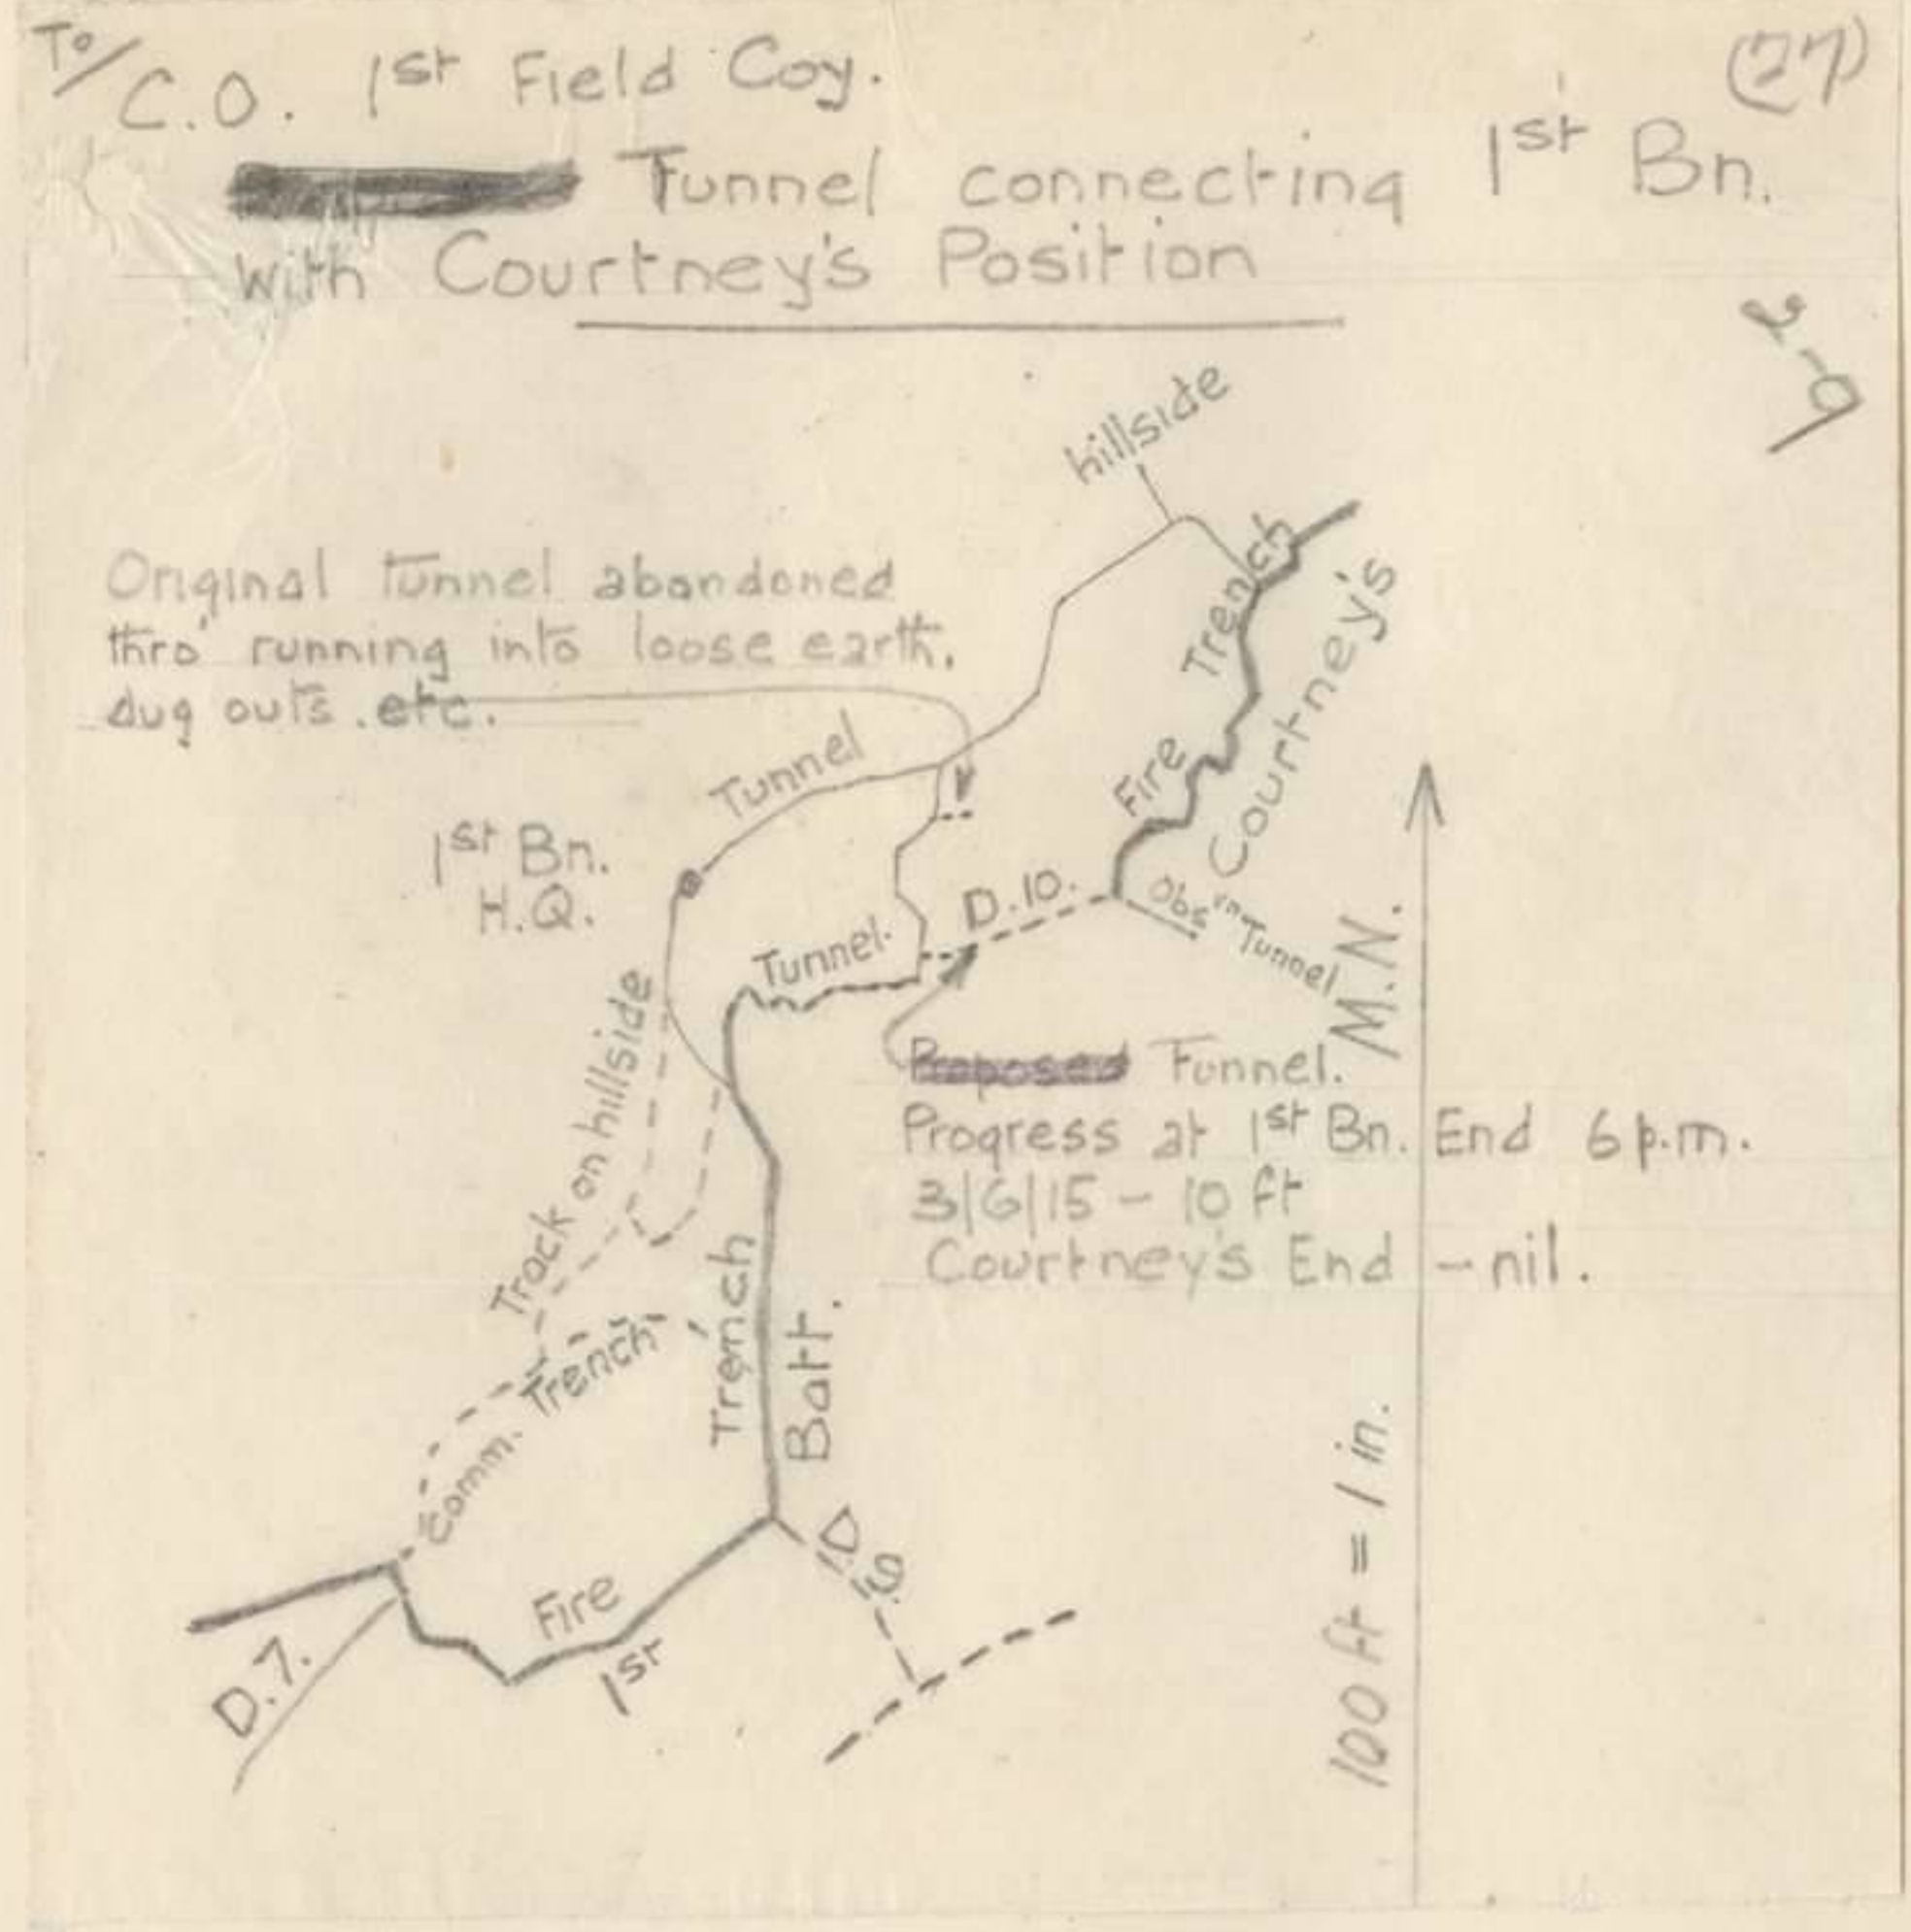 To/
C.O. 1st Field Coy.
(27)
Tunnel connecting 1st Bn.
with Courtney's Position
hillside
Original Tunnel abandoned
thro' running into loose earth,
dug outs. etc.
Fire Trench
Courtney's
Tunnel
1st Bn.
H.Q.
D.10.
Obsvn Tunnel
Tunnel.
M.N.
Track on hillside
Proposed Tunnel.
Progress at 1st Bn. End 6 p.m.
3/6/15 - 10 ft
Courtney's End - nil.
Comm. Trench
Fire Trench
1st Batt.
D.9.
D.7.
100 ft = 1 in.